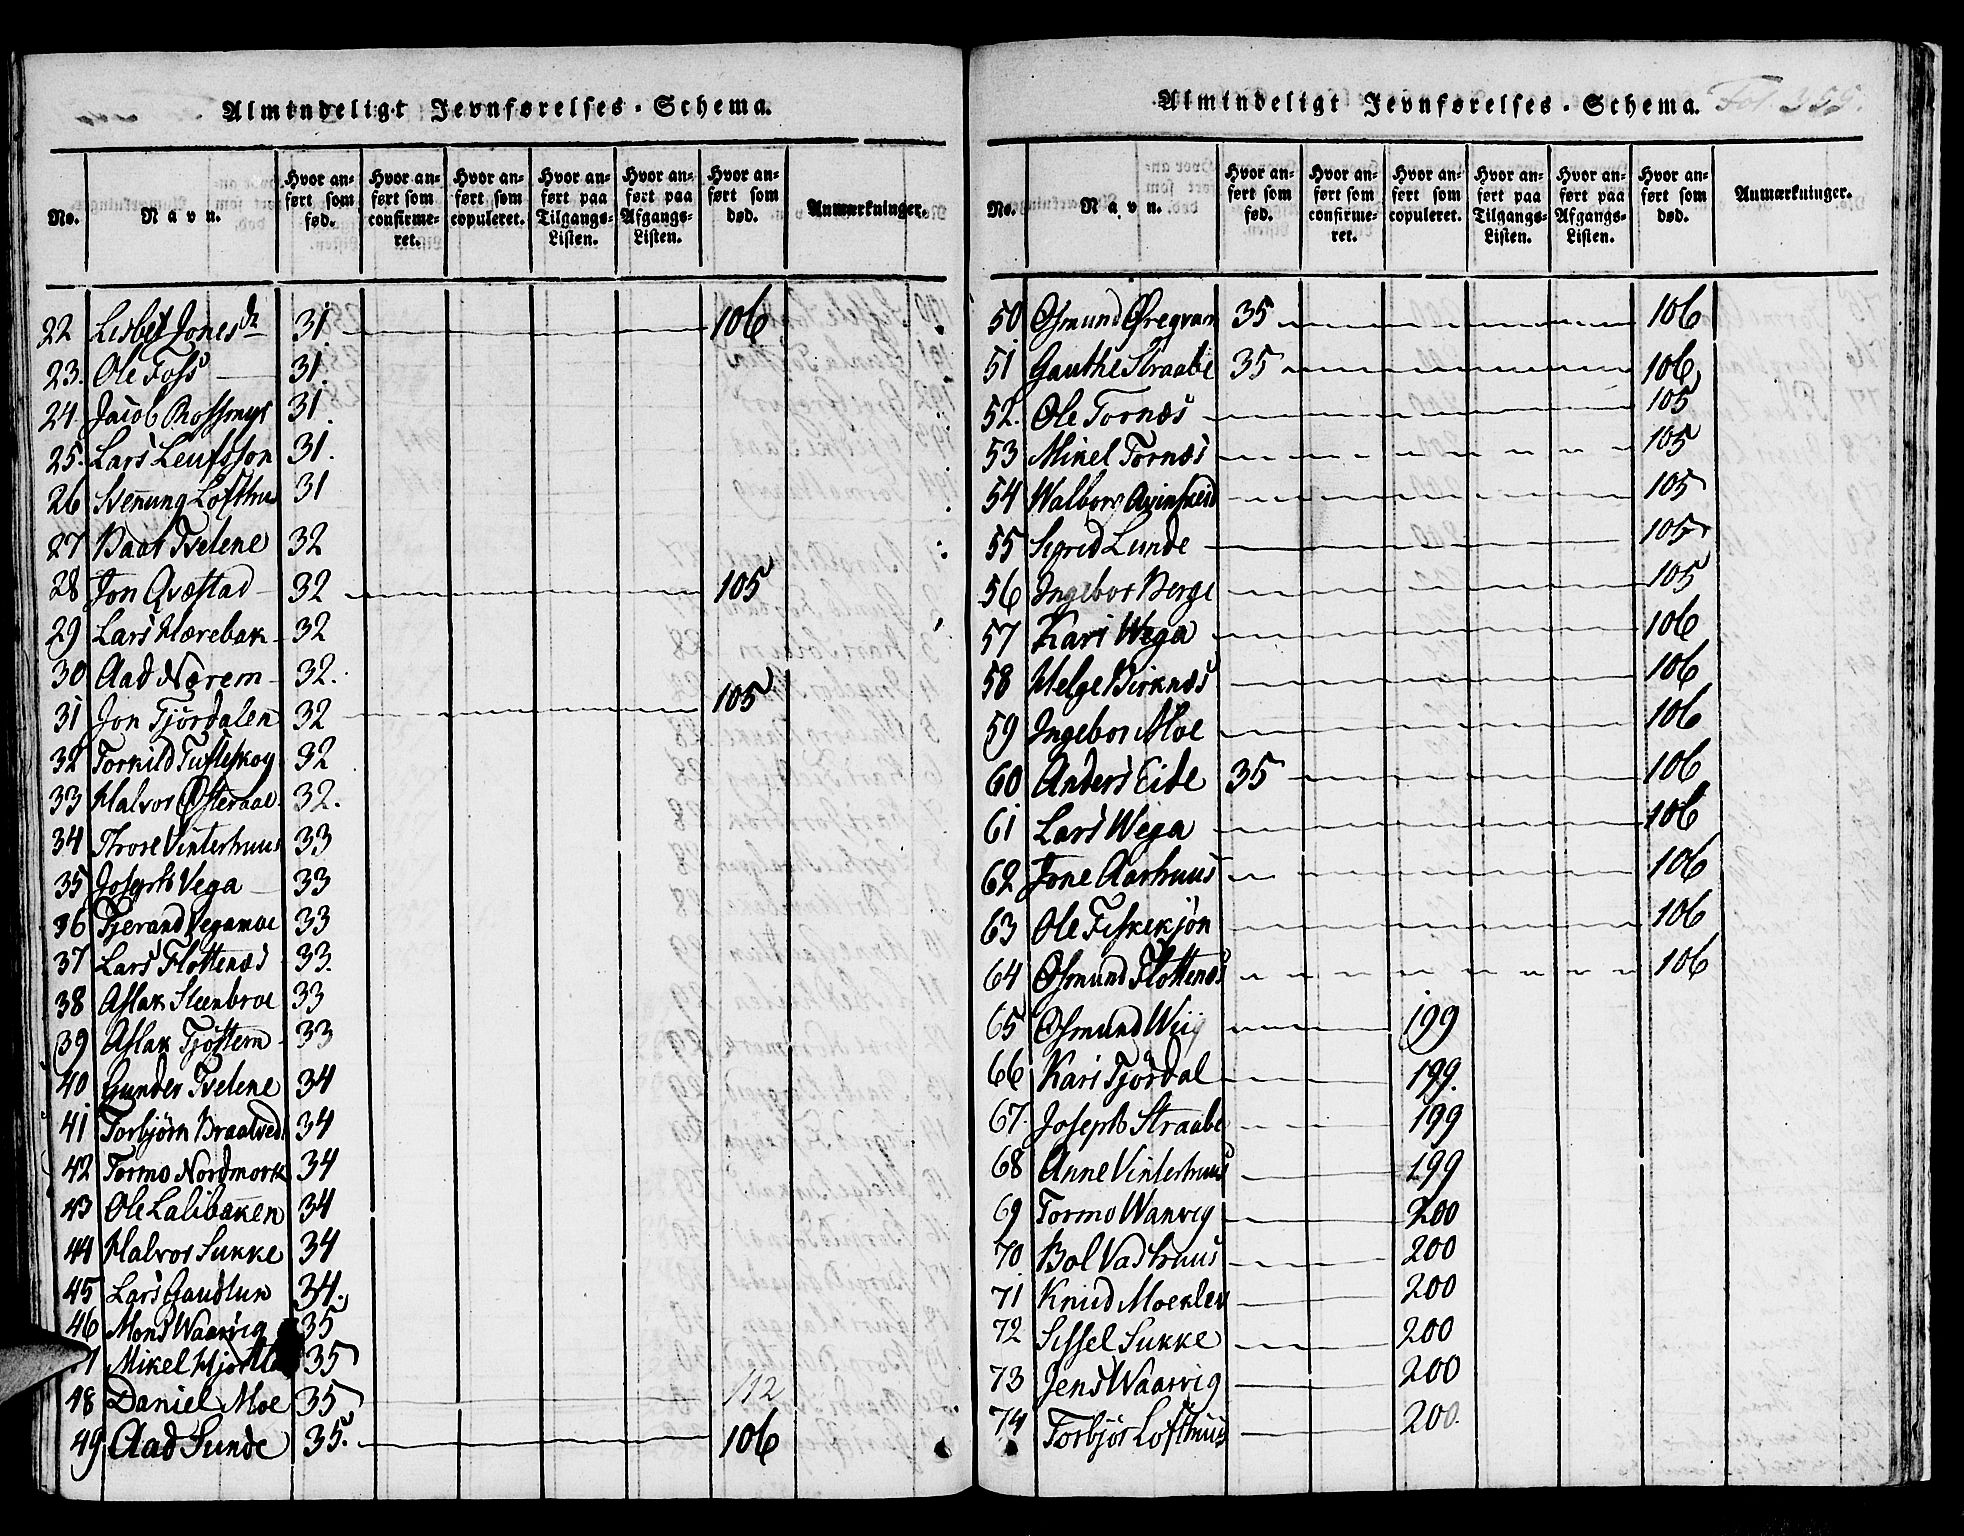 Almindeligt Jevnførelses-Schema.
No. Navn. Hvor anført som fød. Hvor anført som confirmeret. Hvor anført som copuleret. Hvor anført paa Tilgangs-Listen. Hvor anført paa Afgangs-Listen. Hvor anført som død. Anmærkninger.
22 Lisbet Jonesdr 31. 106
23. Ole Foss 31.
24. Jacob Rossmyr 31.
25. Lars Leufsson 31.
26 Svenung Lofthu 31
27 Baar Tvelene 32
28 Jon Qvæstad 32 105
29 Lars Hærebak 32
30 Aad Nærem 32.
31 Jon Tjørdalen 32 105
32 Torkild Tufteskog 32
33 Halvor Østeraae 32.
34 Thore Vinterhuus 33
35 Joseph Vega 33
36 Tjerand Vegamoe 33
37 Lars Flottenæs 33.
38 Aslak Steenbroe 33
39 Aslak Tjøttem 33
40 Gunder Tvelene 34
41 Torbjørn Braatvedt 34
42 Tormo Nordmork 34
43 Ole Lalibakken 34
44 Halvor Sukke 34
45 Lars Gautlun 34.
46 Mons Waarvig 35
Mikel Hjortla 35
48 Daniel Moe 35 112
49 Aad Sunde 35. 106
Almindeligt Jevnførelses-Schema. Fol. 355.
No. Navn. Hvor anført som fød. Hvor anført som confirmeret. Hvor anført som copuleret. Hvor anført paa Tilgangs-Listen. Hvor anført paa Afgangs-Listen. Hvor anført som død. Anmærkninger.
50 Osmund Øregvam 35 106
51 Gauthe Straabe 35 106
52. Ole Tornæs 105
53 Mikel Tornæs 105
54 Walbor Qvinheid 105
55 Sigrid Lunde 105
56 Ingebor Berge 105
57 Kari Wega 106
58 Helge Birknæs 106
59 Ingebor Moe 106
60 Anders Eide 35 106
61 Lars Wega 106
62 Jone Aarhuus 106
63 Ole Fiskekjøn 106
64 Osmund Flottenæs 106
65 Osmund Wiig 199
66 Kari Tjørdal 199.
67. Joseph Straabe 199
68 Anne Vinterhuus 199
69 Tormo Wanvig 200
70 Bol Vashuus 200
71 Knud Moeklev 200
72 Sissel Sukke 200
73 Jens Waarvig 200
74 Torbjør Lofthuus 200.